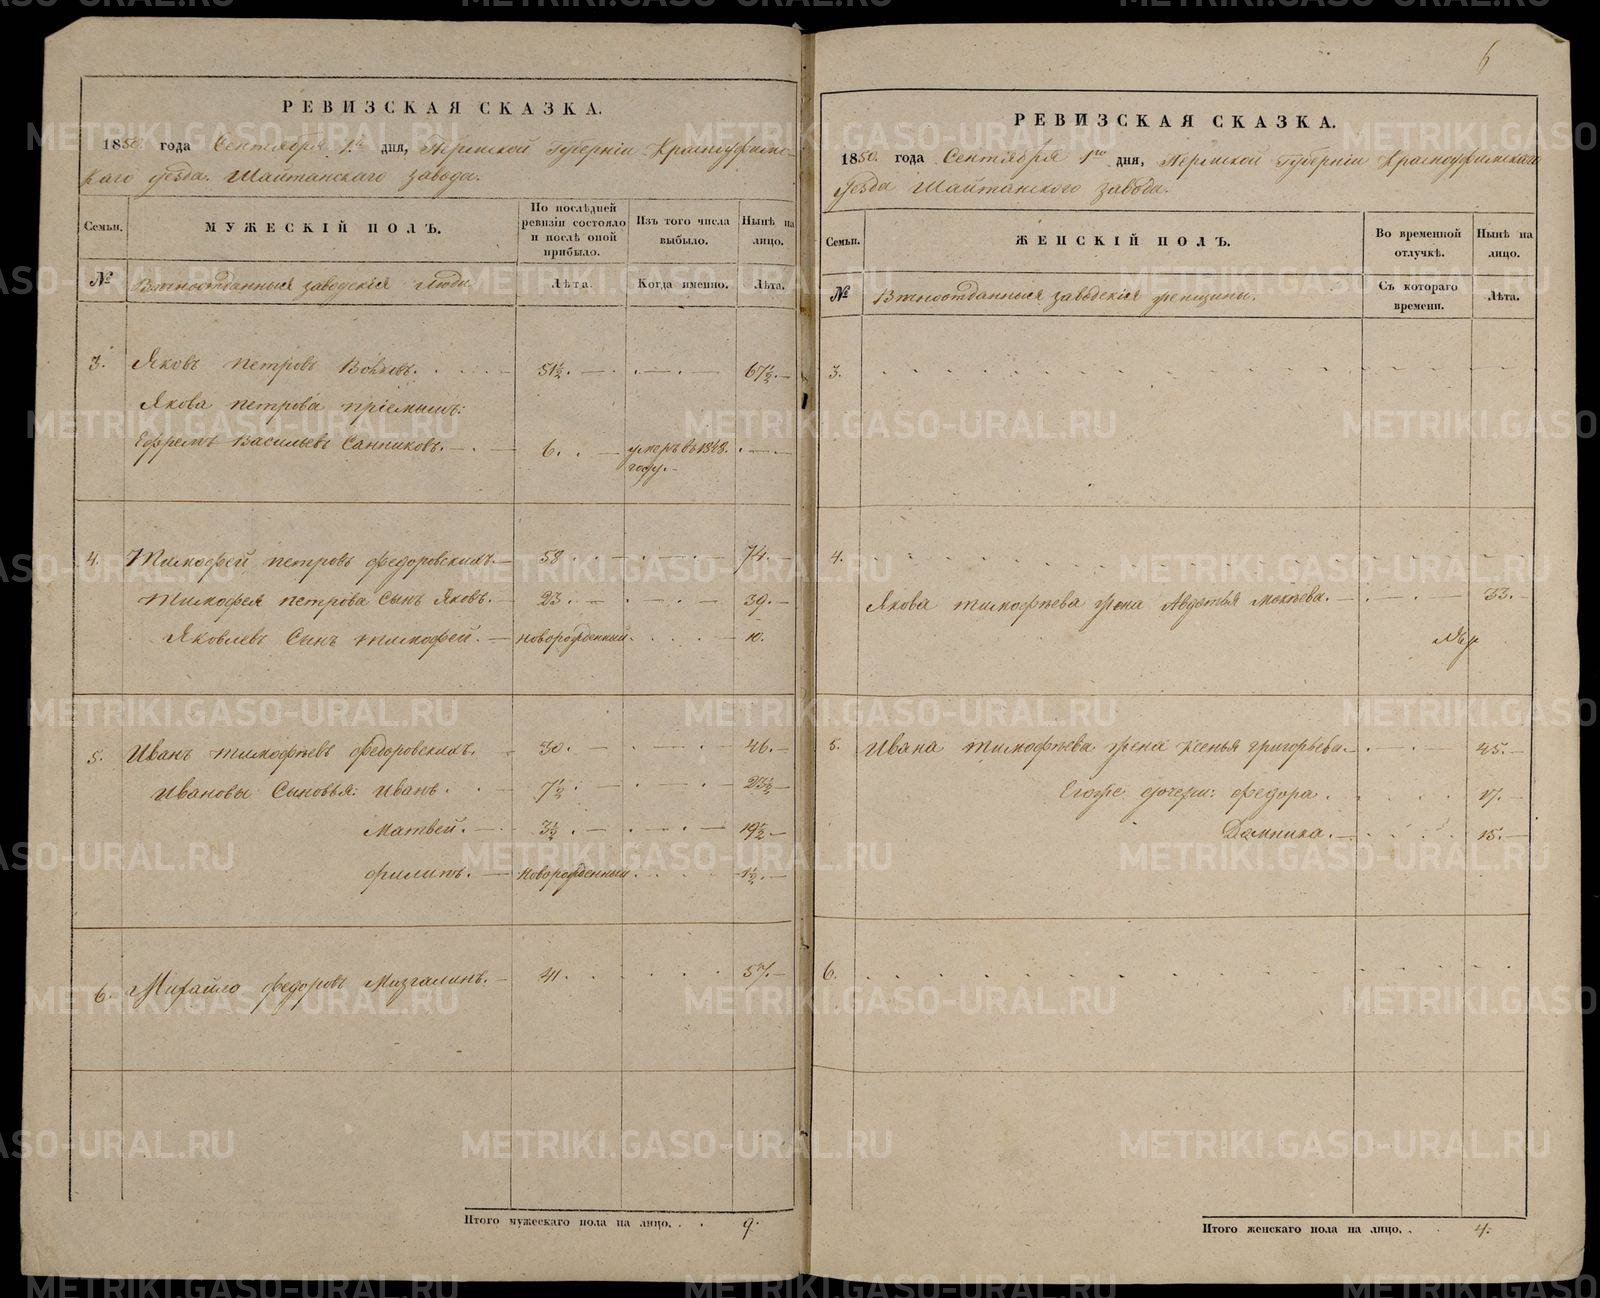 РЕВИЗСКАЯ СКАЗКА.
1850. года Сентября 1го дня, Пермской Губерніи Красноуфимс-
каго уѣзда. Шайтанскаго завода.
Семьи.
МУЖЕСКІЙ ПОЛЪ.
По послѣдней ревизіи состояло и послѣ оной прибыло.
Изъ того числа выбыло.
Нынѣ на лицо.
№
заводскія люди
Лѣта.
Когда именно.
Лѣта.
3. Яковъ Петровъ . . . 51½. — . — . — 67½. —
Якова Петрова пріемышъ:
Ефремъ Васильевъ Санниковъ. — . — 6. . — умеръ въ 1848. году. — . — . —
4. Тимофей Петровъ Федоровскихъ. — 58 . . — . — . 74. —
Тимофея Петрова Сынъ Яковъ. — 23 . — . — . — 39. —
Яковлевъ Сынъ Тимофей. — новорожденный. . . . 10.
5. Иванъ Тимофѣевъ Федоровскихъ. — 30. — . — . — 46. —
Ивановы Сыновья: Иванъ. . — 7½ . — . — . — 23½ —
Матвей. — . 3½ . — . — . — 19½ —
Филипъ. — Новорожденный . . . . 1½. —
6. Михайло Федоровъ Мизгалинъ. — 41 . . . . . 57. —
Итого мужескаго пола на лицо. . . 9.
6
РЕВИЗСКАЯ СКАЗКА.
1850. года Сентября 1го дня, Пермской Губерніи Красноуфимскаго
уѣзда Шайтанскаго завода.
Семьи.
ЖЕНСКІЙ ПОЛЪ.
Во временной отлучкѣ.
Нынѣ на лицо.
№
заводскія женщины.
Съ котораго времени.
Лѣта.
3.
4.
Якова Тимофѣева жена Авдотья Мокѣева. — . — . — 33. —
5. Ивана Тимофѣева жена Ксенья Григорьева. — . — . — 45. —
Егоже дочери: Федора . . . . . 17. —
Домника. — . . . . 15. —
6.
Итого женскаго пола на лицо. . . 4.
METRIKI.GASO-URAL.RU